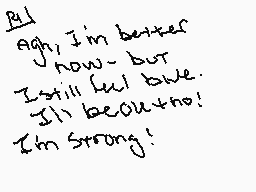 Pt 1
Agh, I'm better
now - but
I still feel blue.
I'll be ok tho!
I'm strong!